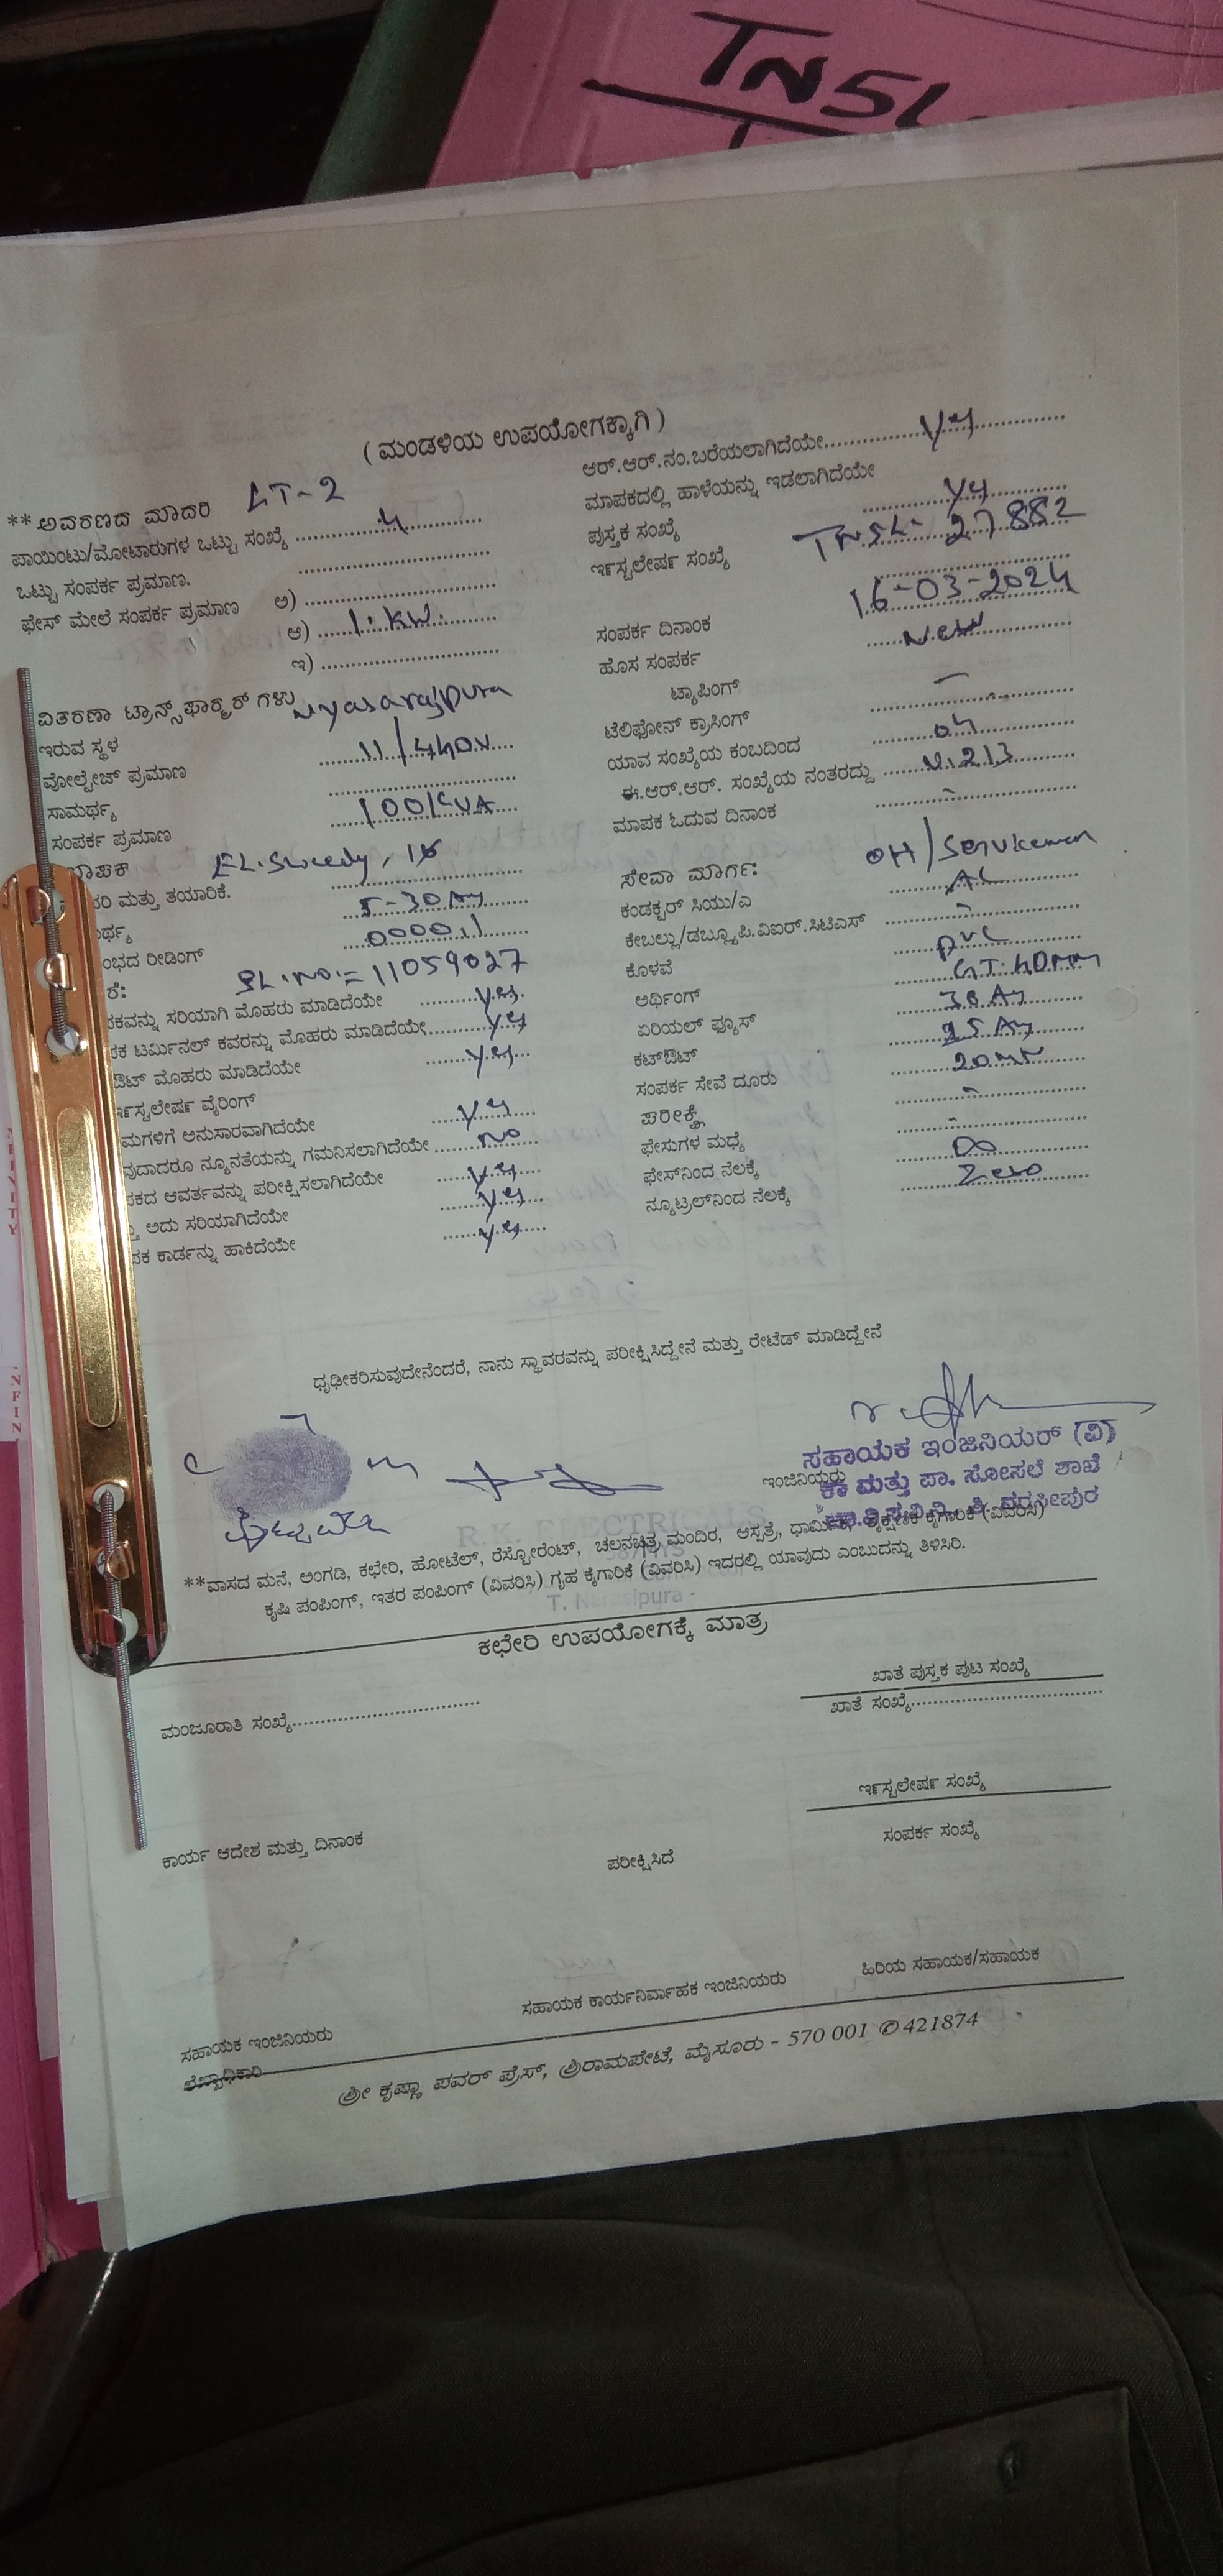 TNSL
( ಮಂಡಳಿಯ ಉಪಯೋಗಕ್ಕಾಗಿ )
**ಅವರಣದ ಮಾದರಿ LT-2
ಪಾಯಿಂಟು/ಮೋಟಾರುಗಳ ಒಟ್ಟು ಸಂಖ್ಯೆ 4
ಒಟ್ಟು ಸಂಪರ್ಕ ಪ್ರಮಾಣ.
ಫೇಸ್ ಮೇಲೆ ಸಂಪರ್ಕ ಪ್ರಮಾಣ ಅ)
ಆ) 1. KW.
ಇ)
ವಿತರಣಾ ಟ್ರಾನ್ಸ್‌ಫಾರ್ಮರ್ ಗಳು
ಇರುವ ಸ್ಥಳ vyasarajpura
ವೋಲ್ಟೇಜ್ ಪ್ರಮಾಣ 11/440V
ಸಾಮರ್ಥ್ಯ
ಸಂಪರ್ಕ ಪ್ರಮಾಣ 100KVA
ಮಾಪಕ EL.Sweedy, 1ϕ
ದರಿ ಮತ್ತು ತಯಾರಿಕೆ.
ರ್ಥ್ಯ 5-30Am
ಂಭದ ರೀಡಿಂಗ್ 0000.1
ರೆ: SL.NO:= 11059027
ಪಕವನ್ನು ಸರಿಯಾಗಿ ಮೊಹರು ಮಾಡಿದೆಯೇ yes.
ಪಕ ಟರ್ಮಿನಲ್ ಕವರನ್ನು ಮೊಹರು ಮಾಡಿದೆಯೇ yes
ಔಟ್ ಮೊಹರು ಮಾಡಿದೆಯೇ yes
ಇನ್ಸ್ಟಲೇಷನ್ ವೈರಿಂಗ್
ಮಗಳಿಗೆ ಅನುಸಾರವಾಗಿದೆಯೇ yes
ವುದಾದರೂ ನ್ಯೂನತೆಯನ್ನು ಗಮನಿಸಲಾಗಿದೆಯೇ No
ಪಕದ ಆವರ್ತವನ್ನು ಪರೀಕ್ಷಿಸಲಾಗಿದೆಯೇ yes
ತ್ತು ಅದು ಸರಿಯಾಗಿದೆಯೇ yes
ಪಕ ಕಾರ್ಡನ್ನು ಹಾಕಿದೆಯೇ yes
ಆರ್.ಆರ್.ನಂ.ಬರೆಯಲಾಗಿದೆಯೇ yes
ಮಾಪಕದಲ್ಲಿ ಹಾಳೆಯನ್ನು ಇಡಲಾಗಿದೆಯೇ
ಪುಸ್ತಕ ಸಂಖ್ಯೆ yes
ಇನ್ಸ್ಟಲೇಷನ್ ಸಂಖ್ಯೆ TNSL- 27882
ಸಂಪರ್ಕ ದಿನಾಂಕ 16-03-2024
ಹೊಸ ಸಂಪರ್ಕ New
ಟ್ಯಾಪಿಂಗ್
ಟೆಲಿಫೋನ್ ಕ್ರಾಸಿಂಗ್ —
ಯಾವ ಸಂಖ್ಯೆಯ ಕಂಬದಿಂದ 04
ಈ.ಆರ್.ಆರ್. ಸಂಖ್ಯೆಯ ನಂತರದ್ದು V.213
ಮಾಪಕ ಓದುವ ದಿನಾಂಕ -
ಸೇವಾ ಮಾರ್ಗ: OH/
ಕಂಡಕ್ಟರ್ ಸಿಯು/ಎ AL
ಕೇಬಲ್ಲು/ಡಬ್ಲ್ಯೂಪಿ.ವಿಐಆರ್.ಸಿಟಿಎಸ್ -
ಕೊಳವೆ PVC
ಅರ್ಥಿಂಗ್ G.I. 40MM
ಏರಿಯಲ್ ಫ್ಯೂಸ್ 30 Am
ಕಟ್‌ಔಟ್ 25 Am
ಸಂಪರ್ಕ ಸೇವೆ ದೂರು 20mt
ಪರೀಕ್ಷೆ -
ಫೇಸುಗಳ ಮಧ್ಯೆ -
ಫೇಸ್‌ನಿಂದ ನೆಲಕ್ಕೆ ∞
ನ್ಯೂಟ್ರಲ್‌ನಿಂದ ನೆಲಕ್ಕೆ Zero
ಧೃಢೀಕರಿಸುವುದೇನೆಂದರೆ, ನಾನು ಸ್ಥಾವರವನ್ನು ಪರೀಕ್ಷಿಸಿದ್ದೇನೆ ಮತ್ತು ರೇಟೆಡ್ ಮಾಡಿದ್ದೇನೆ
ಇಂಜಿನಿಯರು
ಸಹಾಯಕ ಇಂಜಿನಿಯರ್ (ವಿ)
ಕಾ ಮತ್ತು ಪಾ. ಸೋಸಲೆ ಶಾಖೆ
ಚಾ.ವಿ.ಸ.ನಿ.ನಿ., ತಿ. ನರಸೀಪುರ
R.K. ELECTRICALS
T. Narasipura
**ವಾಸದ ಮನೆ, ಅಂಗಡಿ, ಕಛೇರಿ, ಹೋಟೆಲ್, ರೆಸ್ಟೋರೆಂಟ್, ಚಲನಚಿತ್ರ ಮಂದಿರ, ಆಸ್ಪತ್ರೆ, ಧಾರ್ಮಿಕ, ಶೈಕ್ಷಣಿಕ ಕೈಗಾರಿಕೆ (ವಿವರಿಸಿ)
ಕೃಷಿ ಪಂಪಿಂಗ್, ಇತರ ಪಂಪಿಂಗ್ (ವಿವರಿಸಿ) ಗೃಹ ಕೈಗಾರಿಕೆ (ವಿವರಿಸಿ) ಇದರಲ್ಲಿ ಯಾವುದು ಎಂಬುದನ್ನು ತಿಳಿಸಿರಿ.
ಕಛೇರಿ ಉಪಯೋಗಕ್ಕೆ ಮಾತ್ರ
ಖಾತೆ ಪುಸ್ತಕ ಪುಟ ಸಂಖ್ಯೆ
ಮಂಜೂರಾತಿ ಸಂಖ್ಯೆ
ಖಾತೆ ಸಂಖ್ಯೆ
ಇನ್ಸ್ಟಲೇಷನ್ ಸಂಖ್ಯೆ
ಸಂಪರ್ಕ ಸಂಖ್ಯೆ
ಕಾರ್ಯ ಆದೇಶ ಮತ್ತು ದಿನಾಂಕ
ಪರೀಕ್ಷಿಸಿದೆ
ಸಹಾಯಕ ಇಂಜಿನಿಯರು
ಸಹಾಯಕ ಕಾರ್ಯನಿರ್ವಾಹಕ ಇಂಜಿನಿಯರು
ಹಿರಿಯ ಸಹಾಯಕ/ಸಹಾಯಕ
ಲೆಖ್ಖಾಧಿಕಾರಿ
ಶ್ರೀ ಕೃಷ್ಣಾ ಪವರ್ ಪ್ರೆಸ್, ಶ್ರೀರಾಮಪೇಟೆ, ಮೈಸೂರು - 570 001 ✆421874